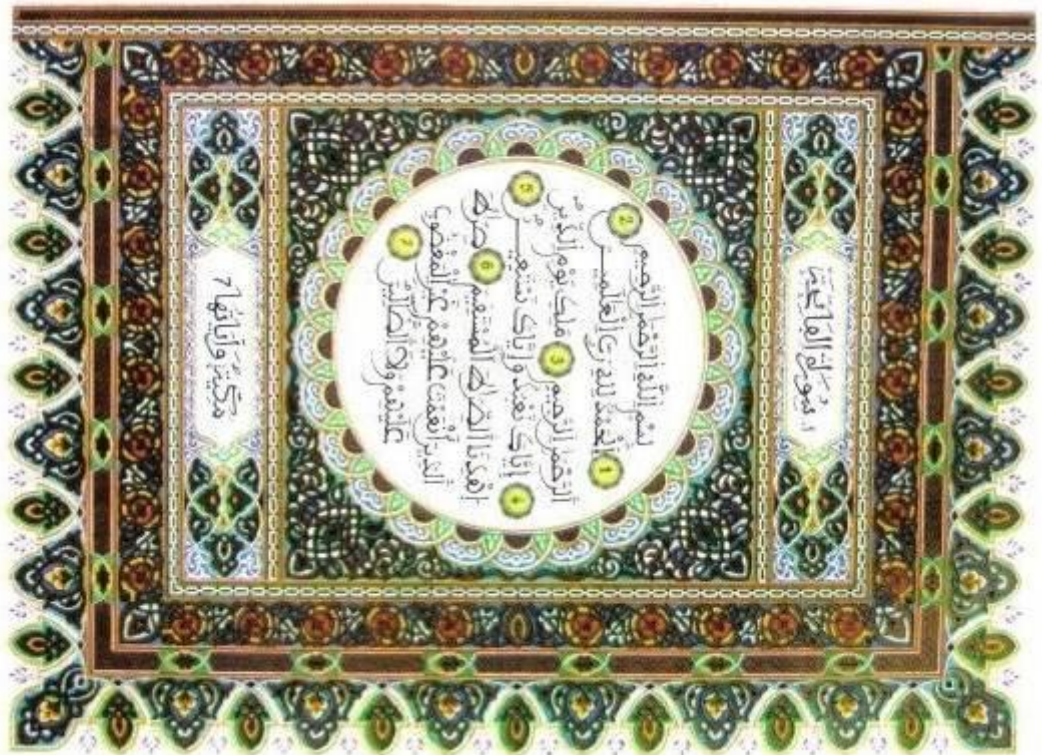 1. سُورَةُ الفَاتِحَةِ
بِسْمِ اِللَّهِ اِلرَّحْمَٰنِ اِلرَّحِيمِ
1 اِلْحَمْدُ لِلهِ رَبِّ اِلْعَٰلَمِينَ 2
اَلرَّحْمَٰنِ اِلرَّحِيمِ 3 مَلِكِ يَوْمِ اِلدِّينِ
4 إِيَّاكَ نَعْبُدُ وَإِيَّاكَ نَسْتَعِينُ 5
اُهْدِنَا اَلصِّرَٰطَ اَلْمُسْتَقِيمَ 6 صِرَٰطَ
اَلذِينَ أَنْعَمْتَ عَلَيْهِمْ غَيْرِ اِلْمَغْضُوبِ
عَلَيْهِمْ وَلَا اَلضَّآلِّينَ 7
مَكِّيَّة وَآيَاتُهَا 7